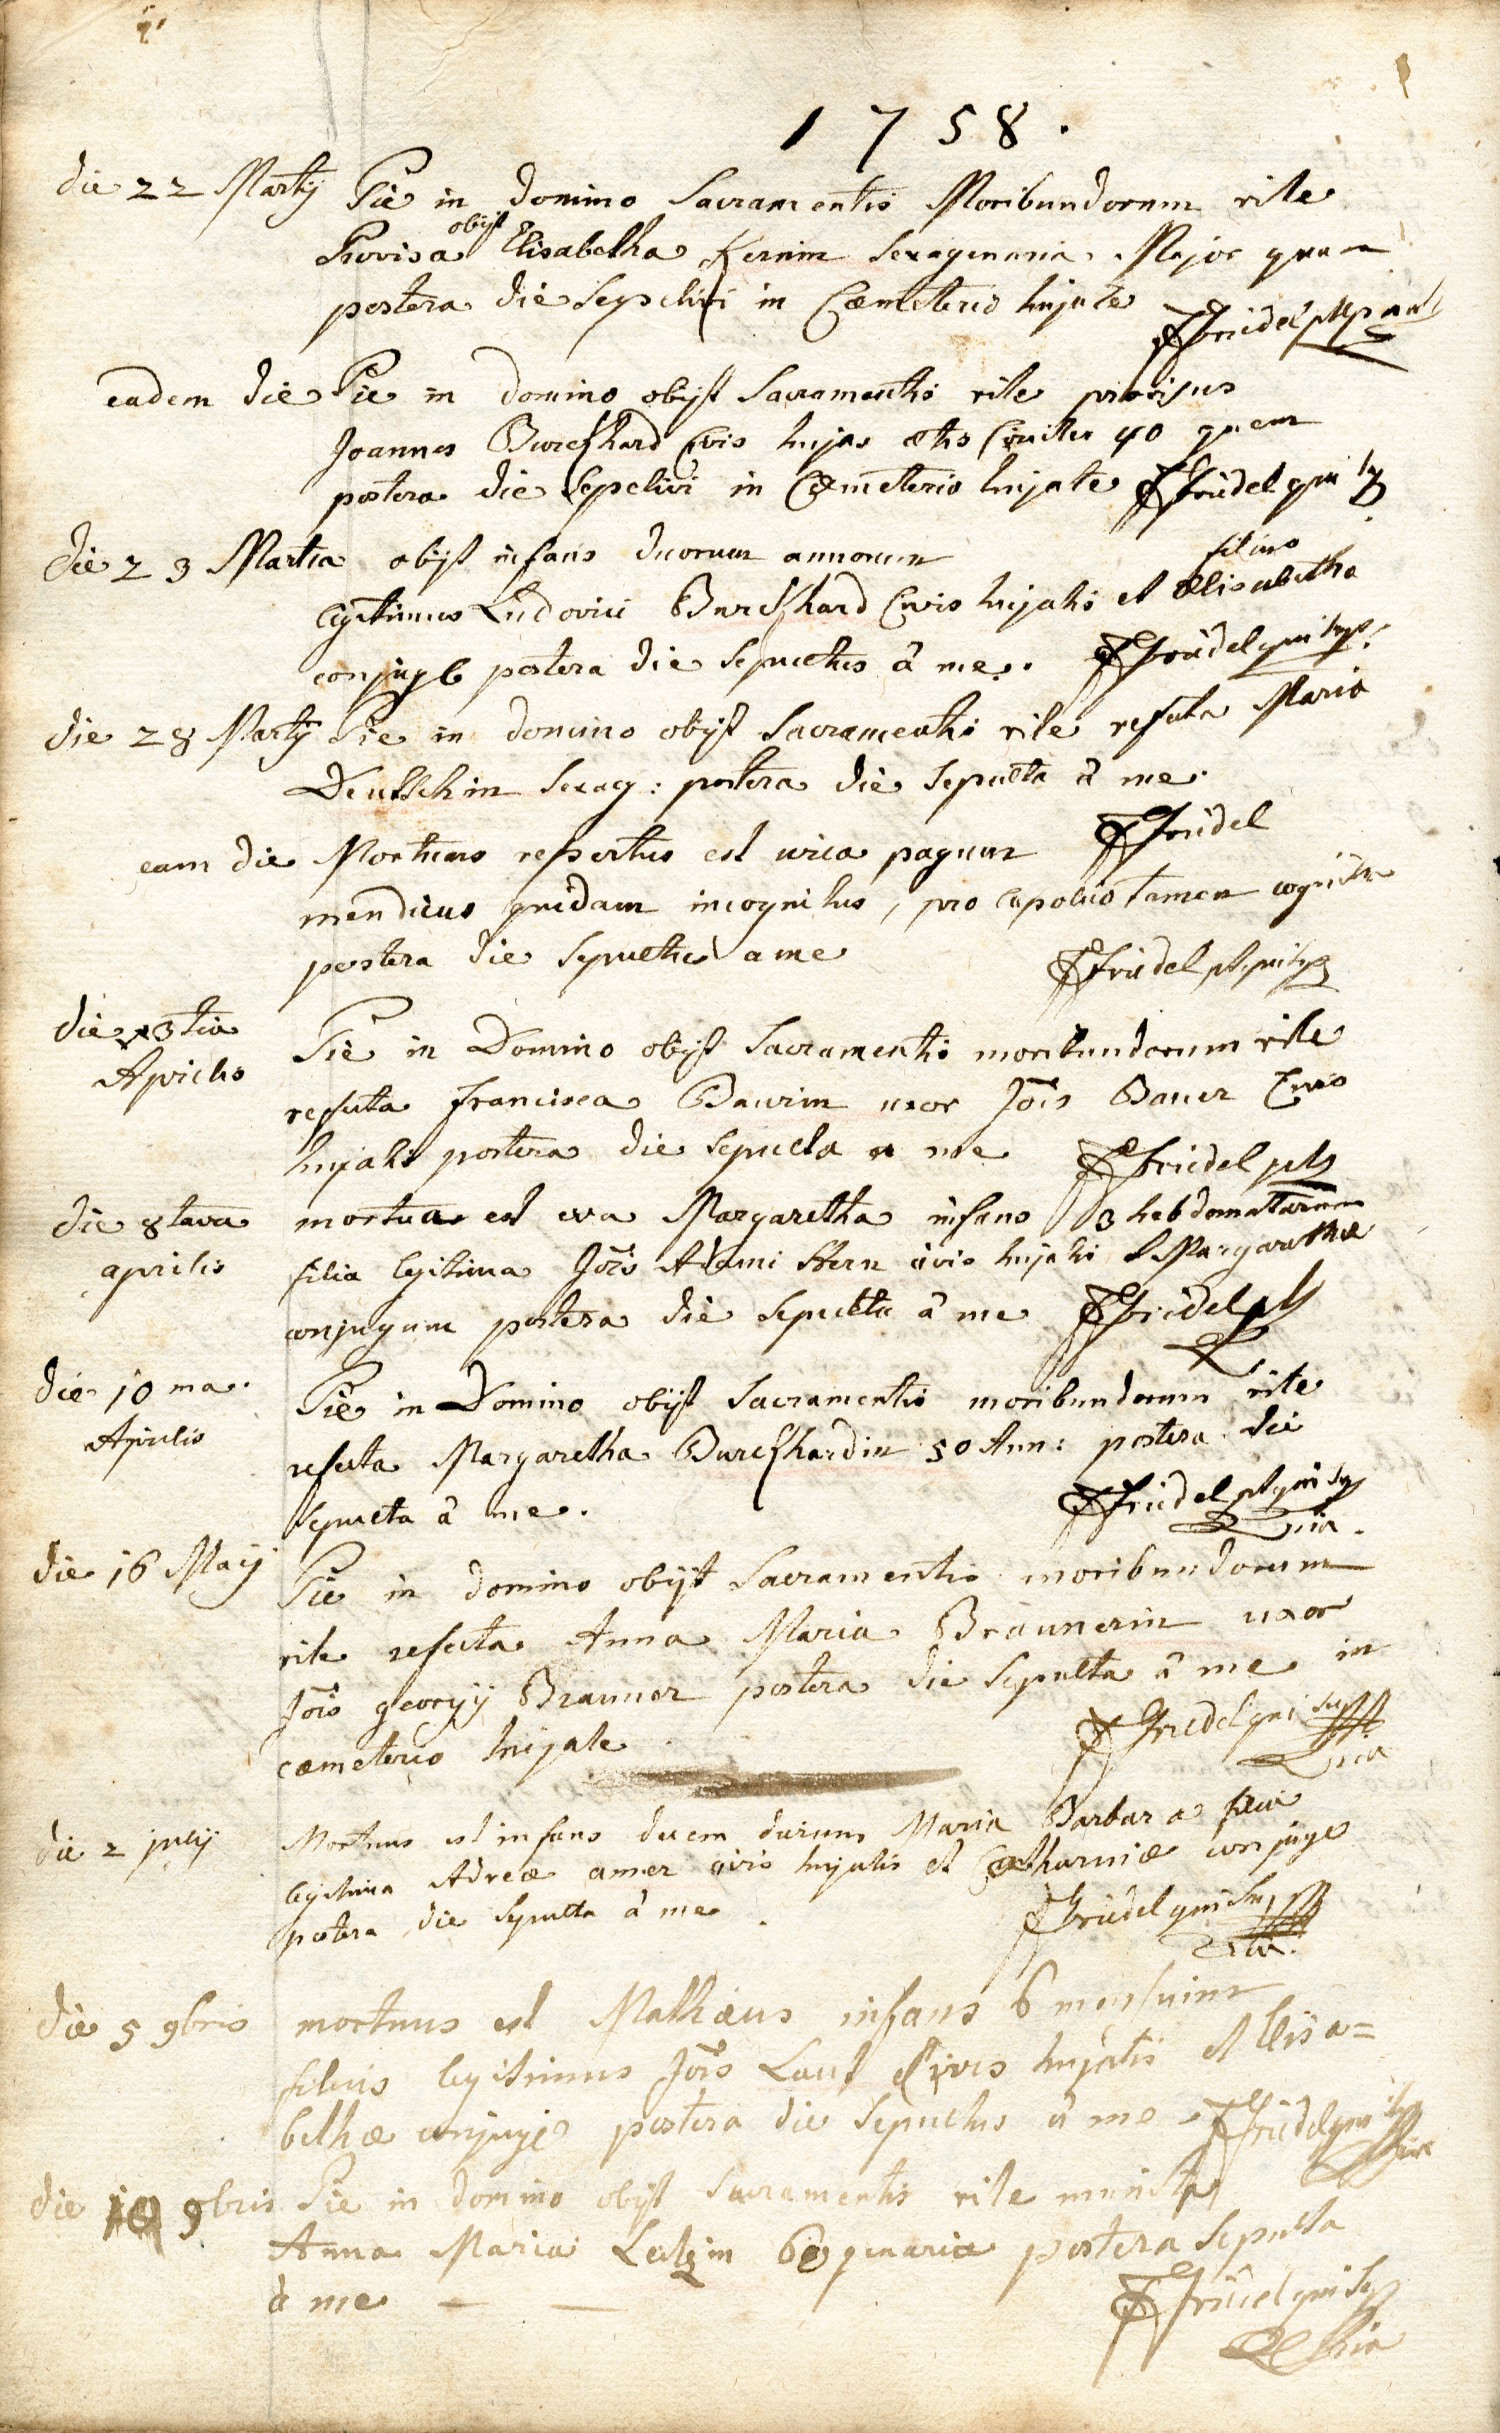 1758.
die 22 Martij Pie in Domino Sacramentis Moribundorum rite
Provisa obijt Elisabetha Kernin sexagenaria. Major quam
postera die sepelivi in Cœmeterio hujate FFridel
eadem die Pie in Domino obijt Sacramentis rite provisus
Joannes Burckhard Civis hujas æts Circiter 40 quem
postera die sepelivi in Cœmeterio hujate FFridel
die 23 Martia obijt infans duorum annorum filius
legitimus Ludovici Burckhard Civis hujatis et Elisabetha
conjuge postera die sepultus â me. FFridel
die 28 Martij Pie in domino obijt Sacramentis rite refecta Maria
Deutschin sexag: postera die sepulta â me.
FFridel
eam die Mortuus repertus est circa pagum
mendicus quidam incognitus, pro Catholico tamen cognitus
postera die sepultus a me FFridel
die 3tia Pie in Domino obijt Sacramentis moribundorum rite
Aprilis
refecta Francisca Baurin uxor Jois Bauer Civis
hujatis postera die sepulta a me FFridel
die 8tava mortua est eva Margaretha infans 3 hebdomatarum
aprilis filia legitima Jois Adami Stern civis hujatis et Margarethæ
conjugum postera die sepulta â me FFridel
die 10ma. Pie in Domino obijt Sacramentis moribundorum rite
Aprilis
refecta Margaretha Burckhardin 50 Ann: postera die
sepulta â me. FFridel
die 16 Maij Pie in domino obijt Sacramentis moribundorum
rite refecta Anna Maria Braunerin uxor
Jois georgij Brauner postera die sepulta â me in
cæmeterio hujate FFridel
die 2 julij Mortuus est infans decem dierum Maria Barbara filia
legitima Adreæ amer civis hujatis et Catharinæ conjuge
postera die sepulta â me. FFridel
die 5 9bris mortuus est Mathæus infans 6 mensuim
filius legitimus Jois Laut Civis hujatis et Elisa=
bethæ conjuge postera die sepultus â me FFridel
die 10 9bris Pie in domino obijt Sacramentis rite munita
Anna Maria Lutzin 60genaria postera sepulta
â me — — FFridel